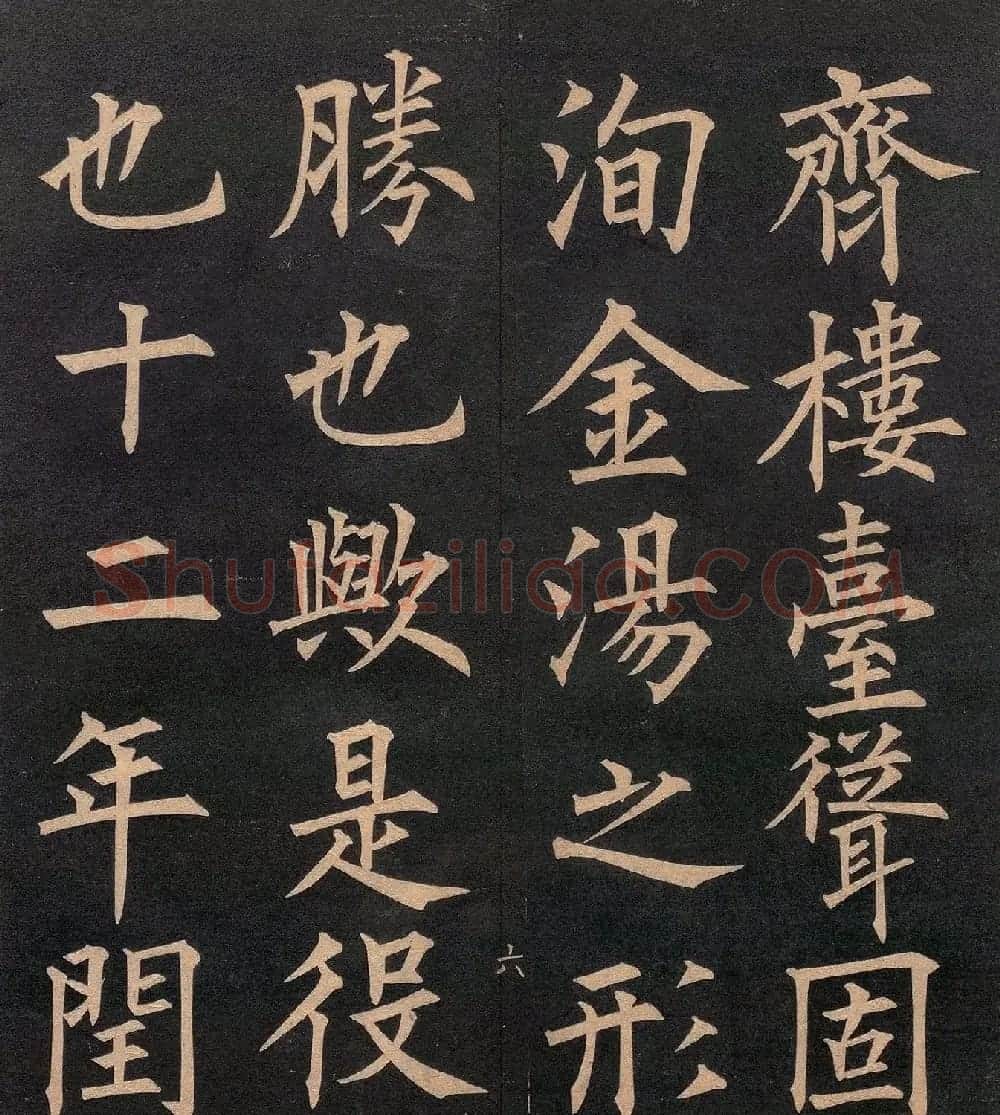 齊樓臺聳固
洵金湯之形
勝也歟是役
也十二年閏
六
Shufaziliao.COM